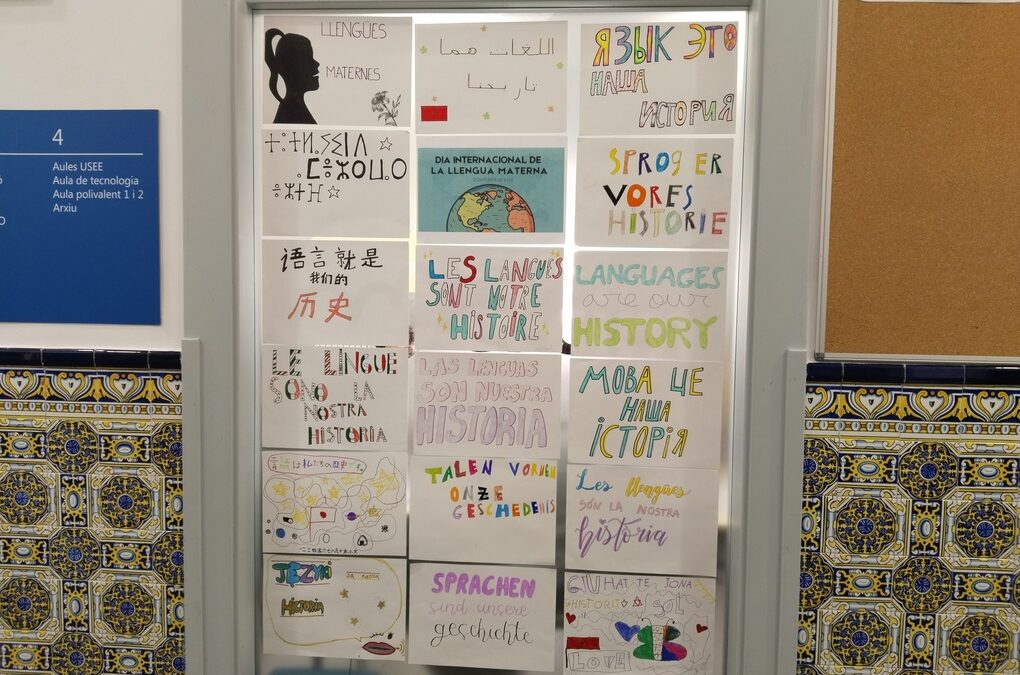 4
Aules USEE
Aula de tecnologia
Aula polivalent 1 i 2
Arxiu
LLENGÜES
MATERNES
اللغات هما
تاريخنا
ЯЗЫК ЭТО
НАША
ИСТОРИЯ
DIA INTERNACIONAL DE
LA LLENGUA MATERNA
SPROG ER
VORES
HISTORIE
语言就是
我们的
历史
LES LANGUES
SONT NOTRE
HISTOIRE
LANGUAGES
are our
HISTORY
LE LINGUE
SONO LA
NOSTRA
HISTORIA
LAS LENGUAS
SON NUESTRA
HISTORIA
МОВА ЦЕ
НАША
ІСТОРІЯ
言語は私たちの歴史です。
TALEN VORDEN
ONZE
GESCHEDENIS
Les llengües
SÓN LA NOSTRA
història
JĘZYKI
HISTORIA
SPRACHEN
sind unsere
geschichte
GJUHAT TE JONA
HISTORI
LOVE